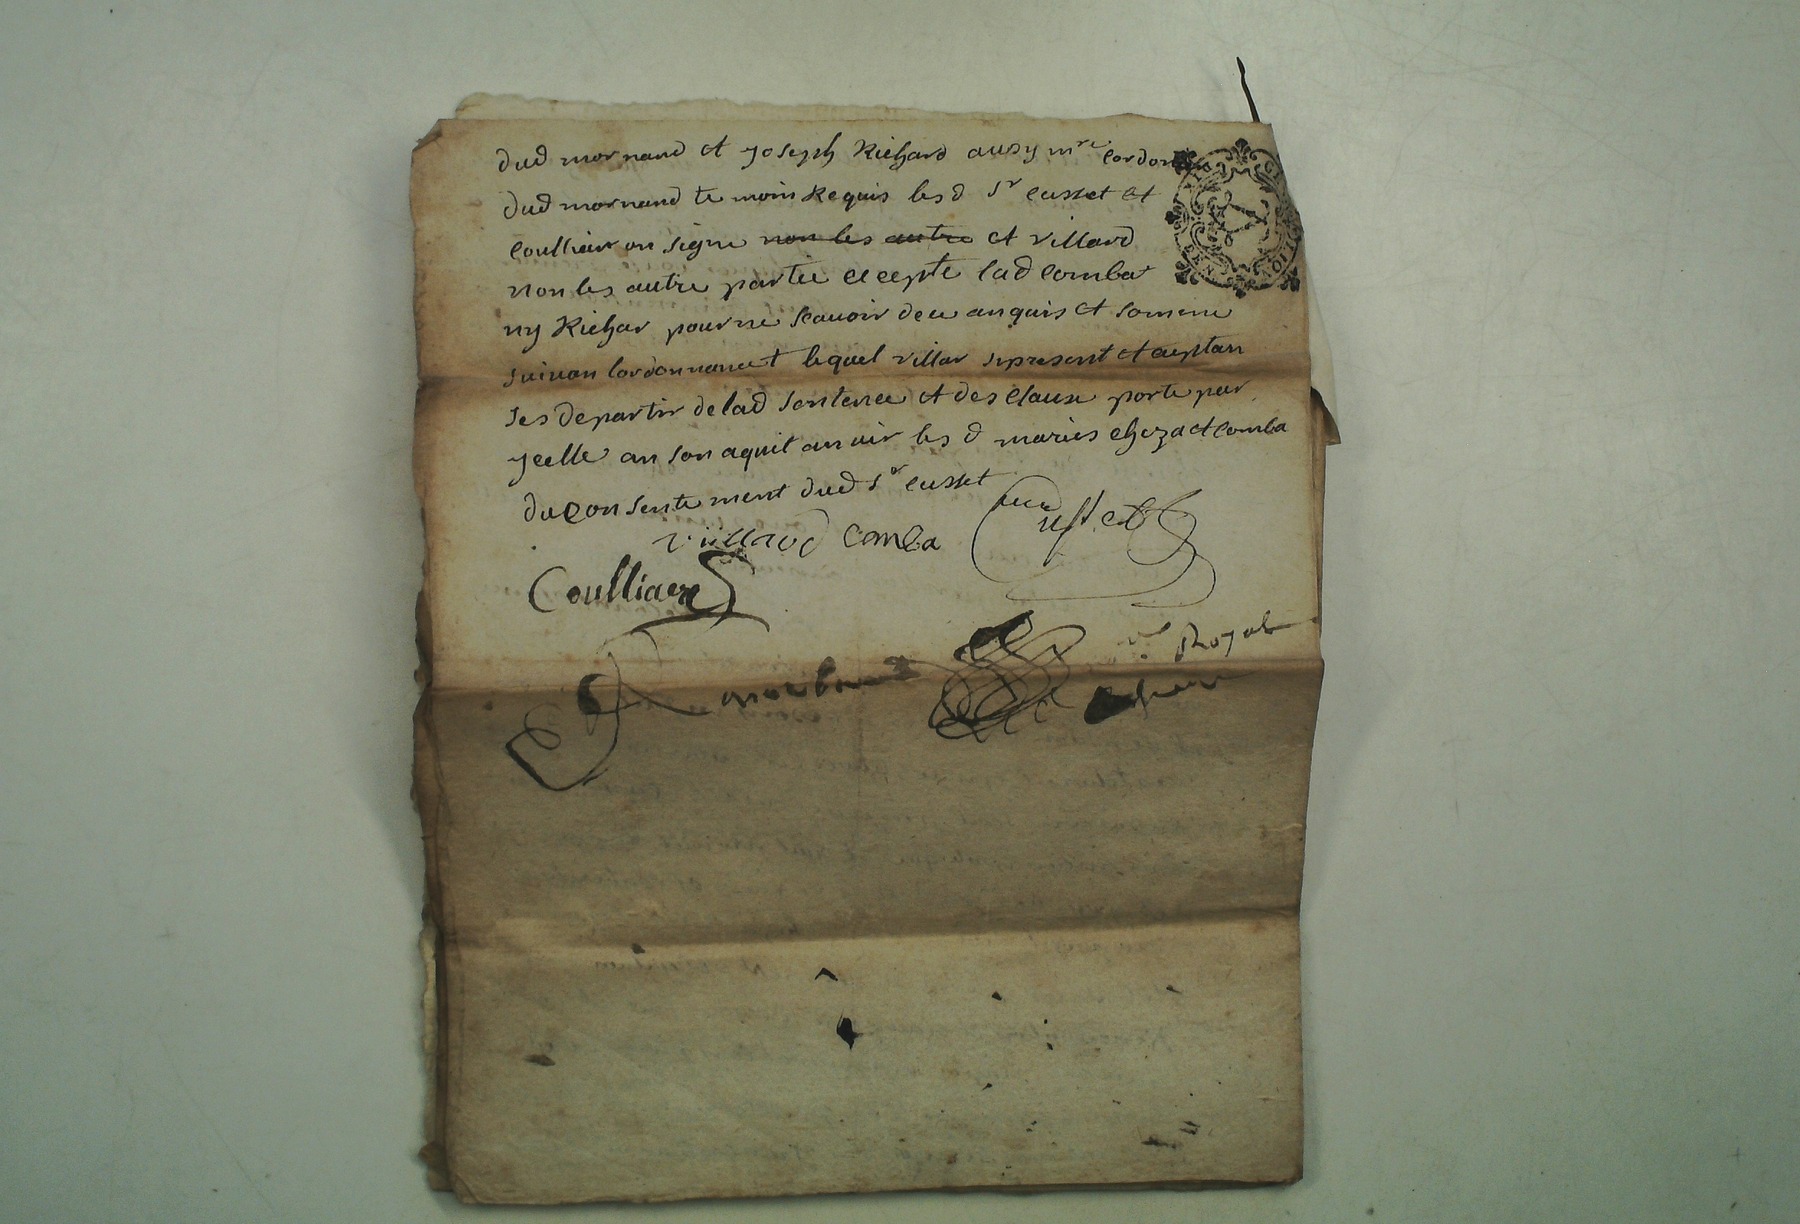 dud mornand et yoseph Richard ausy mre cordon
dud mornand te moin Requis les d sr cusset et
coulliair on signe non les autre et villard
non les autre partie ecepte lad comba
ny Richar pour ne scauoir de ce anquis et somme
suiuan lordonnance et lequel villar sepresent et aceptan
ses departir delad sentence et des clause porte par
ycelle an son aquit anuir les d maries choza et comba
du consente ment dud sr cusset
villard comba Cusset
Coulliaer
Royal